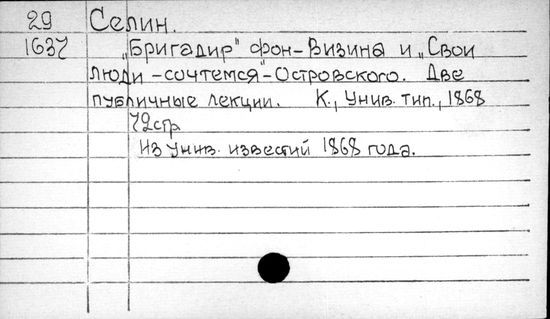 29 Селин.
1637 „Бригадир" фон-Визина и „Свои
люди-сочтемся"-Островского. Две
публичные лекции. К., Унив. тип., 1868
72стр
Из Унив. известий 1868 года.